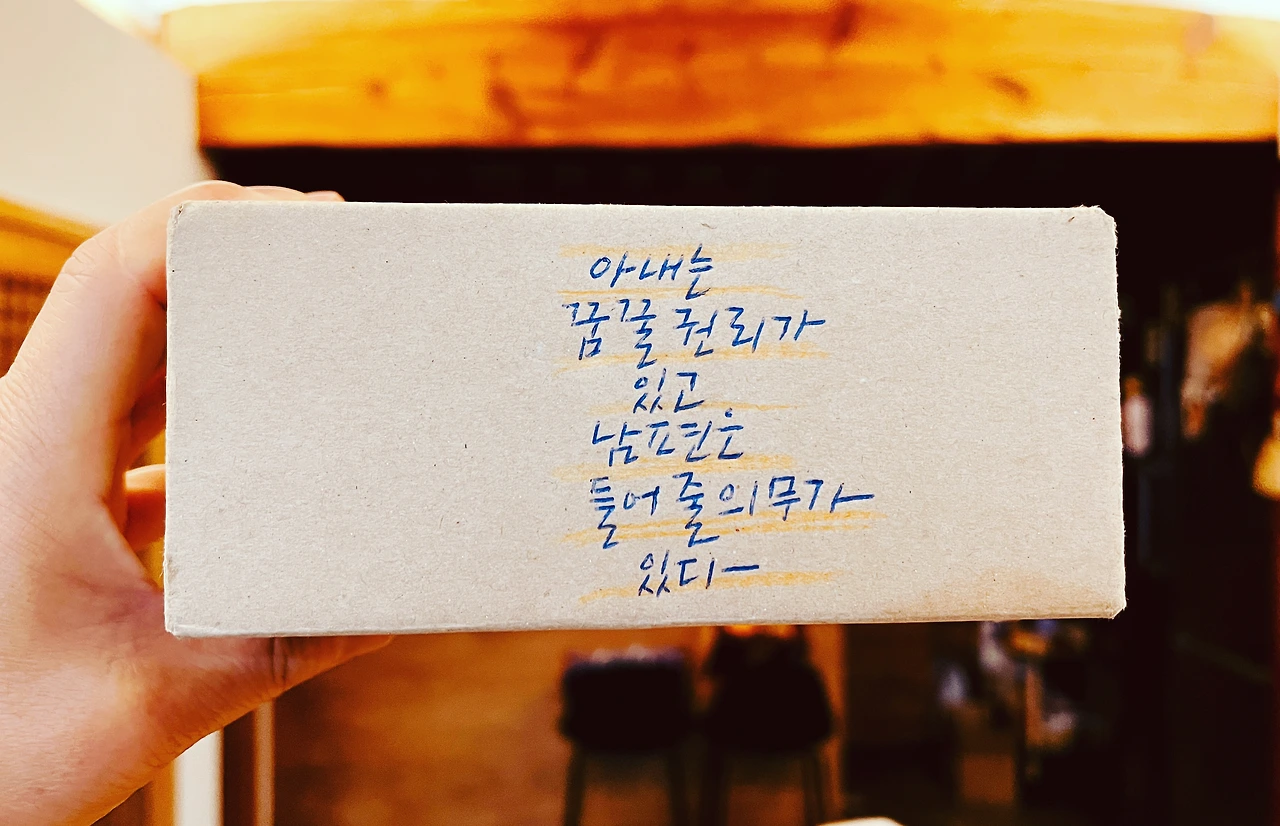 아내는
꿈꿀 권리가
있고
남편은
들어 줄 의무가
있다